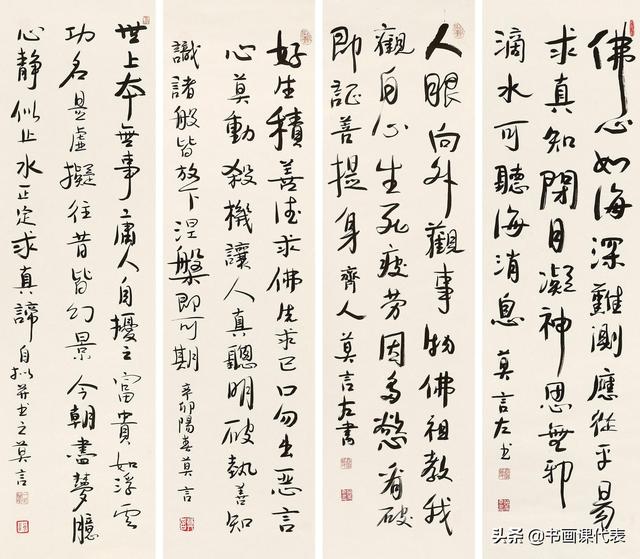 佛心如海深難測應從平易
求真知閉目凝神思無邪
滴水可聽海消息 莫言左书
人眼向外觀事物佛祖教我
觀自心生死疲劳因多慾看破
即証菩提身 齊人莫言左書
好生積善德求佛先求己口勿出惡言
心莫動殺機讓人真聰明破執善知
識諸般皆放下涅槃即可期 辛卯陽春莫言
世上本無事庸人自擾之富貴如浮雲
功名是虛擬往昔皆幻景今朝盡夢臆
心静似止水正定求真諦 自拟并书之莫言
头条 @书画课代表